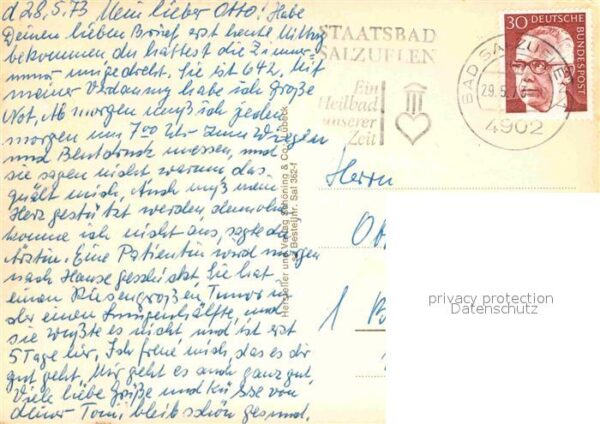 d 28.5.73 Mein lieber Otto! Habe
Deinen lieben Brief erst heute Mittag
bekommen du hattest die Zimmer-
nummer umgedreht. Sie ist 642. Mit
meiner Verdauung habe ich große
Not, Ab morgen muß ich jeden
morgen um 7.00 Uhr zum Wiegen
und Blutdruck messen, und
sie sagen nicht warum, das
quält mich, Auch muß mein
Herz gestützt werden,
komme ich nicht aus, sagte die
Ärztin. Eine Patientin wird morgen
nach Hause geschickt Sie hat
einen Riesengroßen Tumor in
der einen Lungenhälfte, und
sie wußte es nicht und ist erst
5 Tage hier, Ich freue mich, das es dir
gut geht. Mir geht es auch ganz gut,
Viele liebe Grüße und Küsse von
deiner Toni, bleib schön gesund.
Hersteller und Verlag Schöning & Co., Lübeck
Bestellnr. Sal 362-f
STAATSBAD
SALZUFLEN
Ein
Heilbad
unserer
Zeit
BAD SALZUFLEN 1
29.5.73
4902
30 DEUTSCHE
BUNDESPOST
Herrn
Ot
1 B
privacy protection
Datenschutz